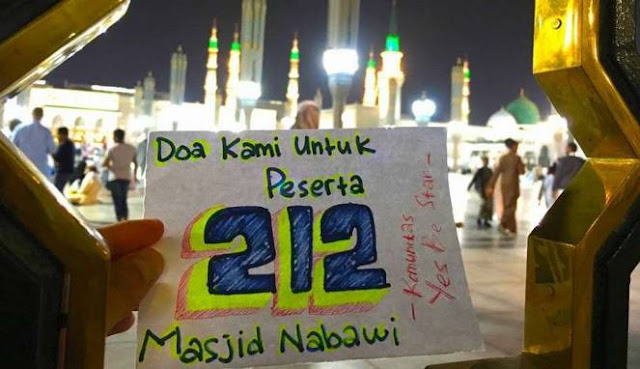 Doa Kami Untuk
Peserta
212
Masjid Nabawi
- Komunitas
Yes Be Star -